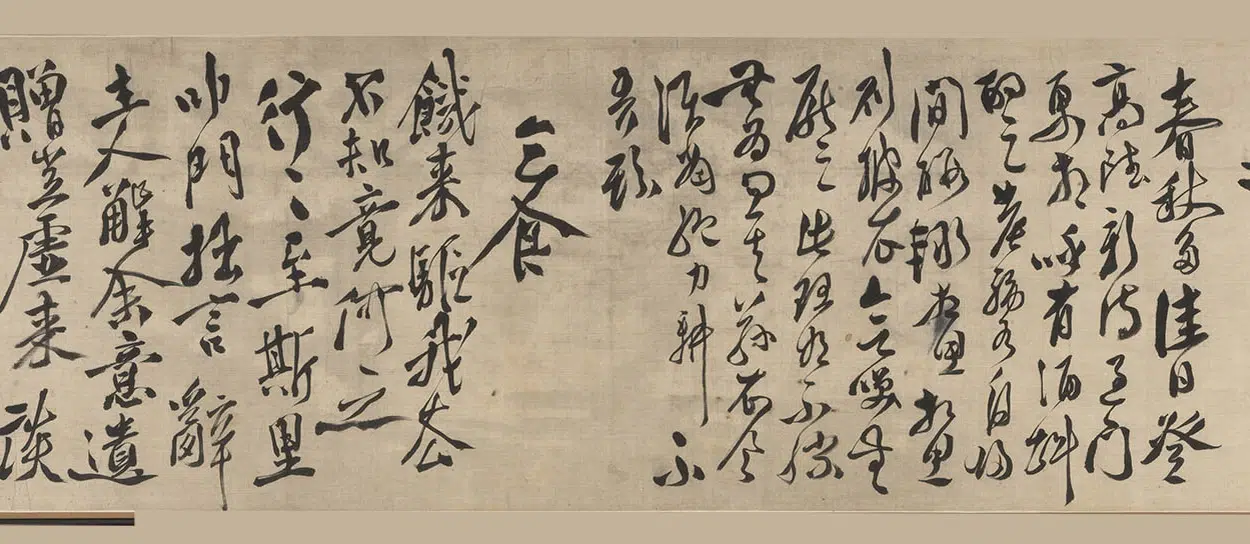 春秋多佳日登
高賦新詩過門
更相呼有酒斟
酌之農務各自歸
閒暇輒相思相思
則披衣言笑無
厭時此理將不勝
無為忽去茲衣食
須當紀力耕不
吾欺
乞食
饑来驅我去
不知竟何之
行〻至斯里
叩門拙言辭
主人解余意遺
贈豈虛来談